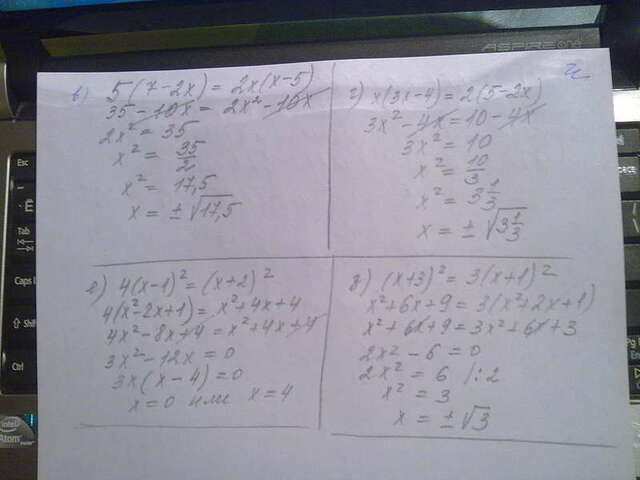 ASPIRE one
в) 5(7-2x) = 2x(x-5)
35 - 10x = 2x² - 10x
2x² = 35
x² = 35/2
x² = 17,5
x = ± √17,5
г) x(3x-4) = 2(5-2x)
3x² - 4x = 10 - 4x
3x² = 10
x² = 10/3
x² = 3 1/3
x = ± √3 1/3
е) 4(x-1)² = (x+2)²
4(x²-2x+1) = x²+4x+4
4x²-8x+4 = x²+4x+4
3x²-12x = 0
3x(x-4) = 0
x=0 или x=4
д) (x+3)² = 3(x+1)²
x²+6x+9 = 3(x²+2x+1)
x²+6x+9 = 3x²+6x+3
2x²-6 = 0
2x² = 6 |:2
x² = 3
x = ± √3
Esc
Tab
Caps L
Shif
Ctrl
intel
Atom